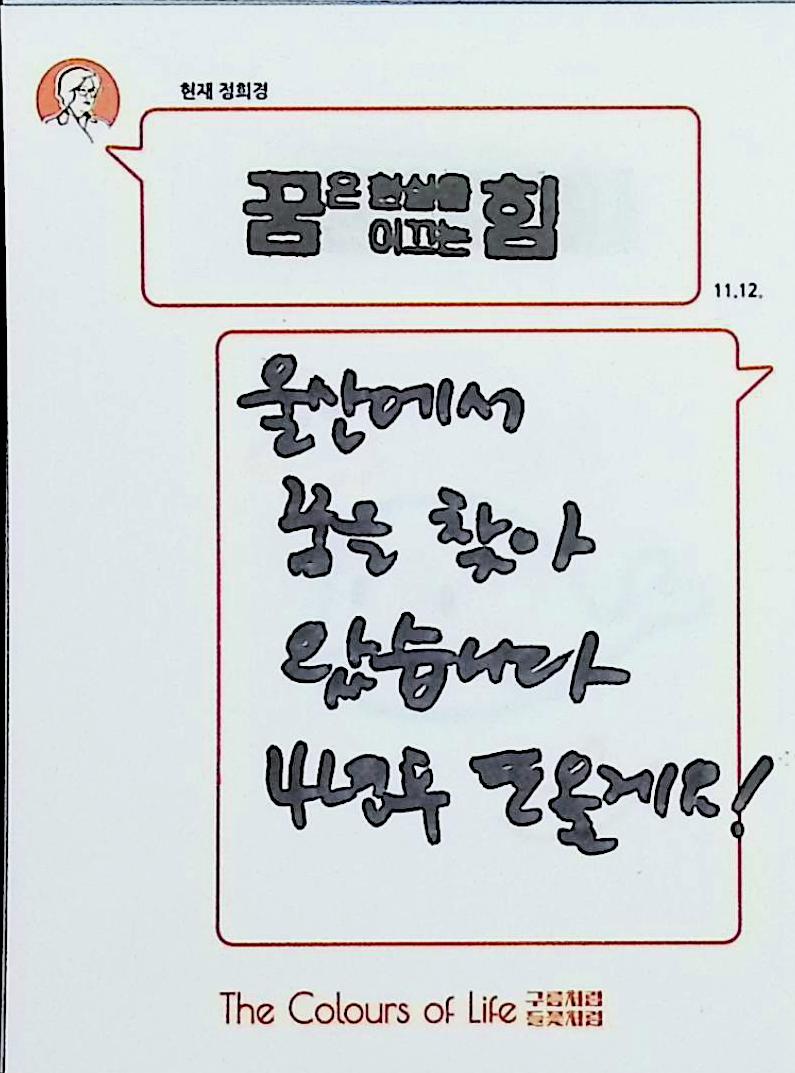 현재 정희경
꿈은 현실을
이끄는 힘
11.12.
울산에서
꿈을 찾아
왔습니다
4년후 또올게요!
The Colours of Life 구름처럼
들꽃처럼